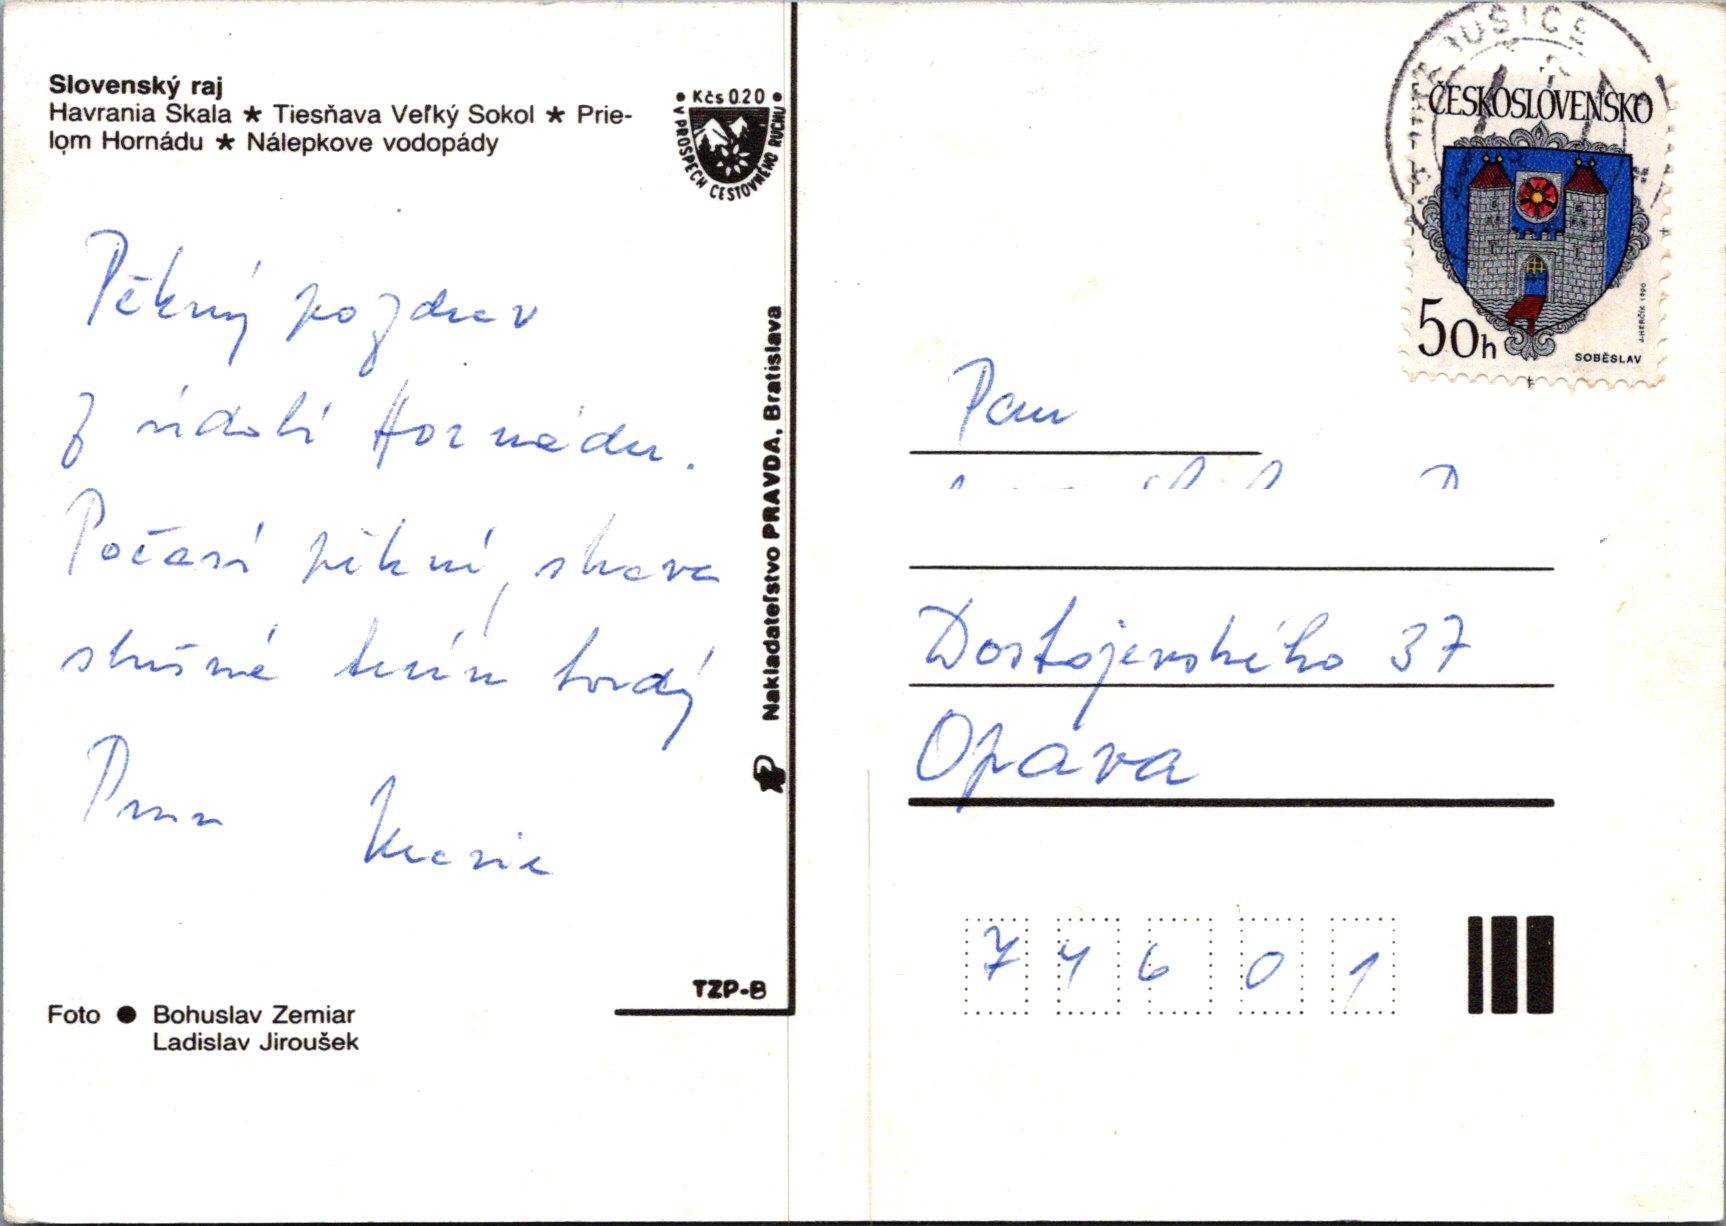 Slovenský raj
Havrania Skala ★ Tiesňava Veľký Sokol ★ Prie-
lom Hornádu ★ Nálepkove vodopády
• Kčs 0.20 •
V PROSPECH CESTOVNÉHO RUCHU
Pěkný pozdrav
z údolí Hornádu.
Počasí pěkné, strava
slušná terén tvrdý
Nakladateľstvo PRAVDA, Bratislava
TZP-B
Foto ● Bohuslav Zemiar
Ladislav Jiroušek
ČESKOSLOVENSKO
50h
SOBĚSLAV
J.HERČÍK 1990
Pan
Dostojevského 37
Opava
74601